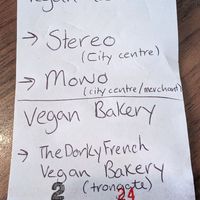 Vegan
→ Stereo
(City centre)
→ Mono
(city centre/merchant)
Vegan Bakery
→ The Dorky French
Vegan Bakery
(trongate)
2 24